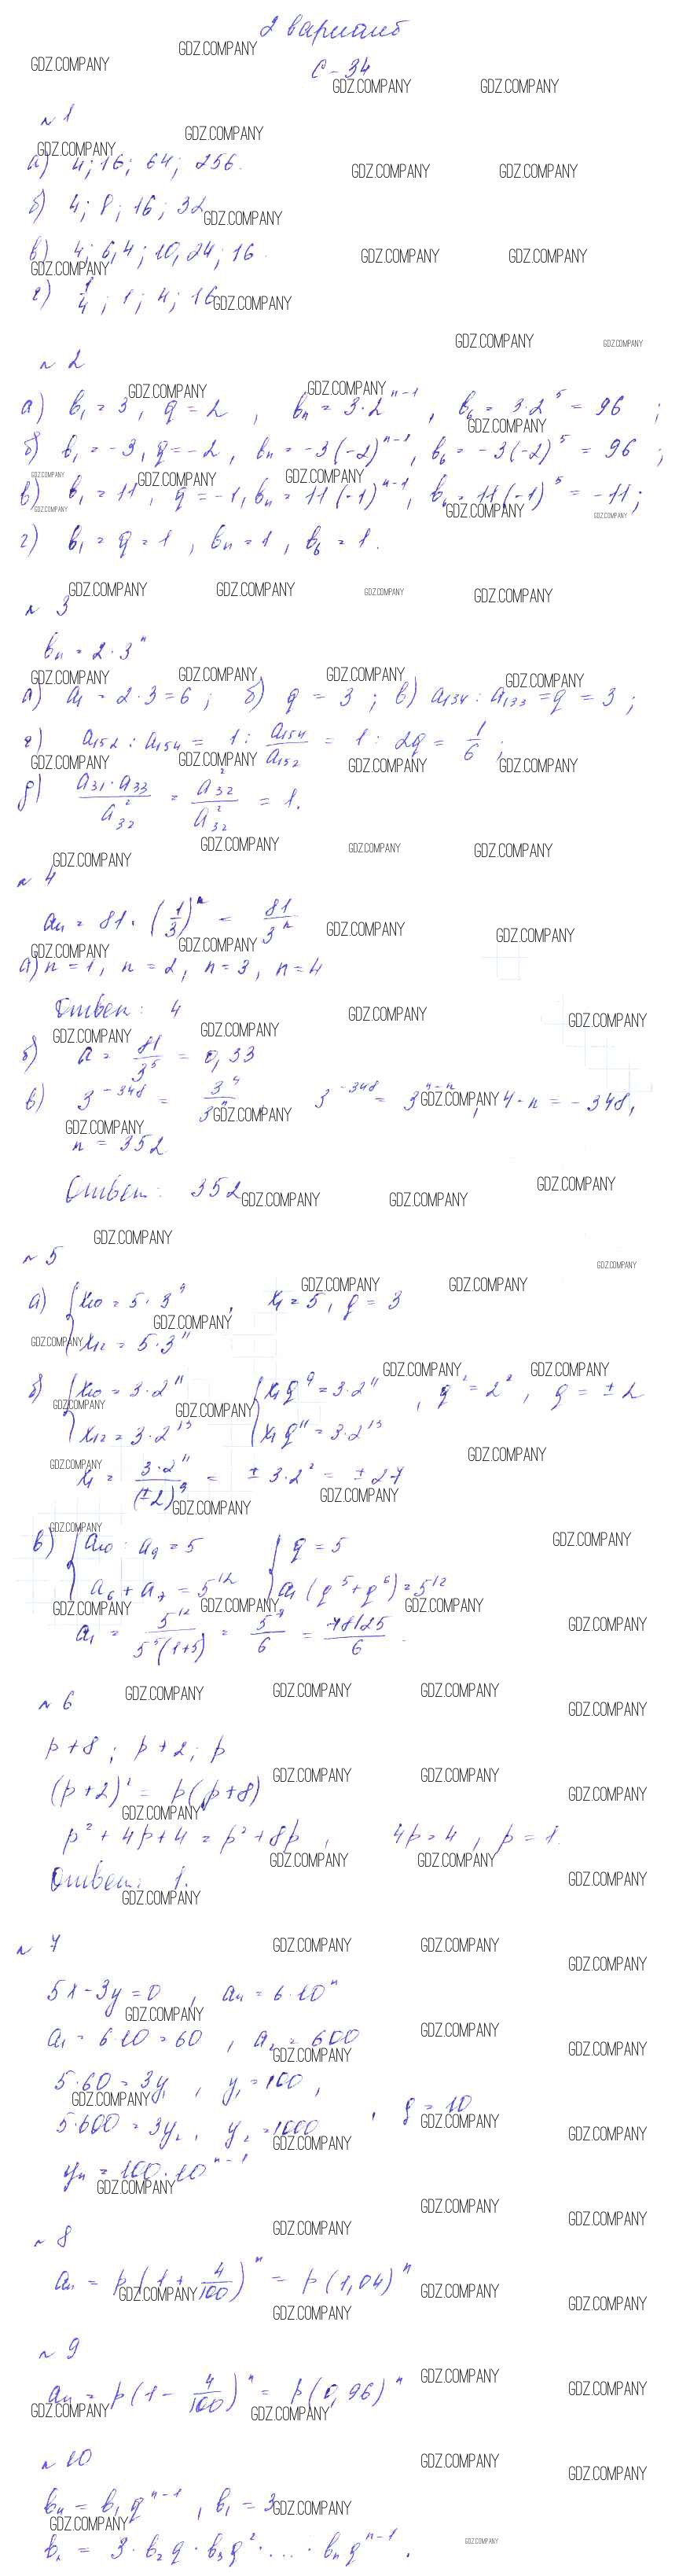 2 вариант
С-34
№1
а) 4; 16; 64; 256.
б) 4; 8; 16; 32
в) 4; 6,4; 10,24; 16.
г) 1/4; 1; 4; 16
№2
а) b₁ = 3, q = 2, bₙ = 3·2ⁿ⁻¹, b₆ = 3·2⁵ = 96;
б) b₁ = -3, q = -2, bₙ = -3(-2)ⁿ⁻¹, b₆ = -3(-2)⁵ = 96;
в) b₁ = 11, q = -1, bₙ = 11(-1)ⁿ⁻¹, b₆ = 11(-1)⁵ = -11;
г) b₁ = q = 1, bₙ = 1, b₆ = 1.
№3
bₙ = 2·3ⁿ
а) a₁ = 2·3 = 6; б) q = 3; в) a₁₃₄ : a₁₃₃ = q = 3;
г) a₁₅₂ : a₁₅₄ = 1 : a₁₅₄/a₁₅₂ = 1 : 2q = 1/6;
д) a₃₁·a₃₃/a₃₂² = a₃₂²/a₃₂² = 1.
№4
aₙ = 81·(1/3)ⁿ = 81/3ⁿ
а) n = 1, n = 2, n = 3, n = 4
Ответ: 4
б) a = 81/3⁵ = 0,33
в) 3⁻³⁴⁸ = 3⁴/3ⁿ 3⁻³⁴⁸ = 3⁴⁻ⁿ, 4-n = -348,
n = 352
Ответ: 352
№5
а) { x₁₀ = 5·3⁹, x₁ = 5, q = 3
x₁₂ = 5·3¹¹
б) { x₁₀ = 3·2¹¹ { x₁q⁹ = 3·2¹¹, q² = 2², q = ±2
x₁₂ = 3·2¹³ x₁q¹¹ = 3·2¹³
x₁ = 3·2¹¹/(±2)⁹ = ±3·2² = ±27
в) { a₁₀ : a₉ = 5 { q = 5
a₆ + a₇ = 5¹² a₁(q⁵+q⁶) = 5¹²
a₁ = 5¹²/5⁵(1+5) = 5⁷/6 = 78125/6.
№6
p+8; p+2; p
(p+2)² = p(p+8)
p² + 4p + 4 = p² + 8p, 4p = 4, p = 1.
Ответ: 1.
№7
5x - 3y = 0, aₙ = 6·10ⁿ
a₁ = 6·10 = 60, a₂ = 600
5·60 = 3y₁, y₁ = 100,
5·600 = 3y₂, y₂ = 1000, q = 10
yₙ = 100·10ⁿ⁻¹
№8
aₙ = p(1 + 4/100)ⁿ = p(1,04)ⁿ
№9
aₙ = p(1 - 4/100)ⁿ = p(0,96)ⁿ
№10
bₙ = b₁qⁿ⁻¹, b₁ = 3
bₙ = 3·b₂q·b₃q²·...·bₙqⁿ⁻¹.
GDZ.COMPANY